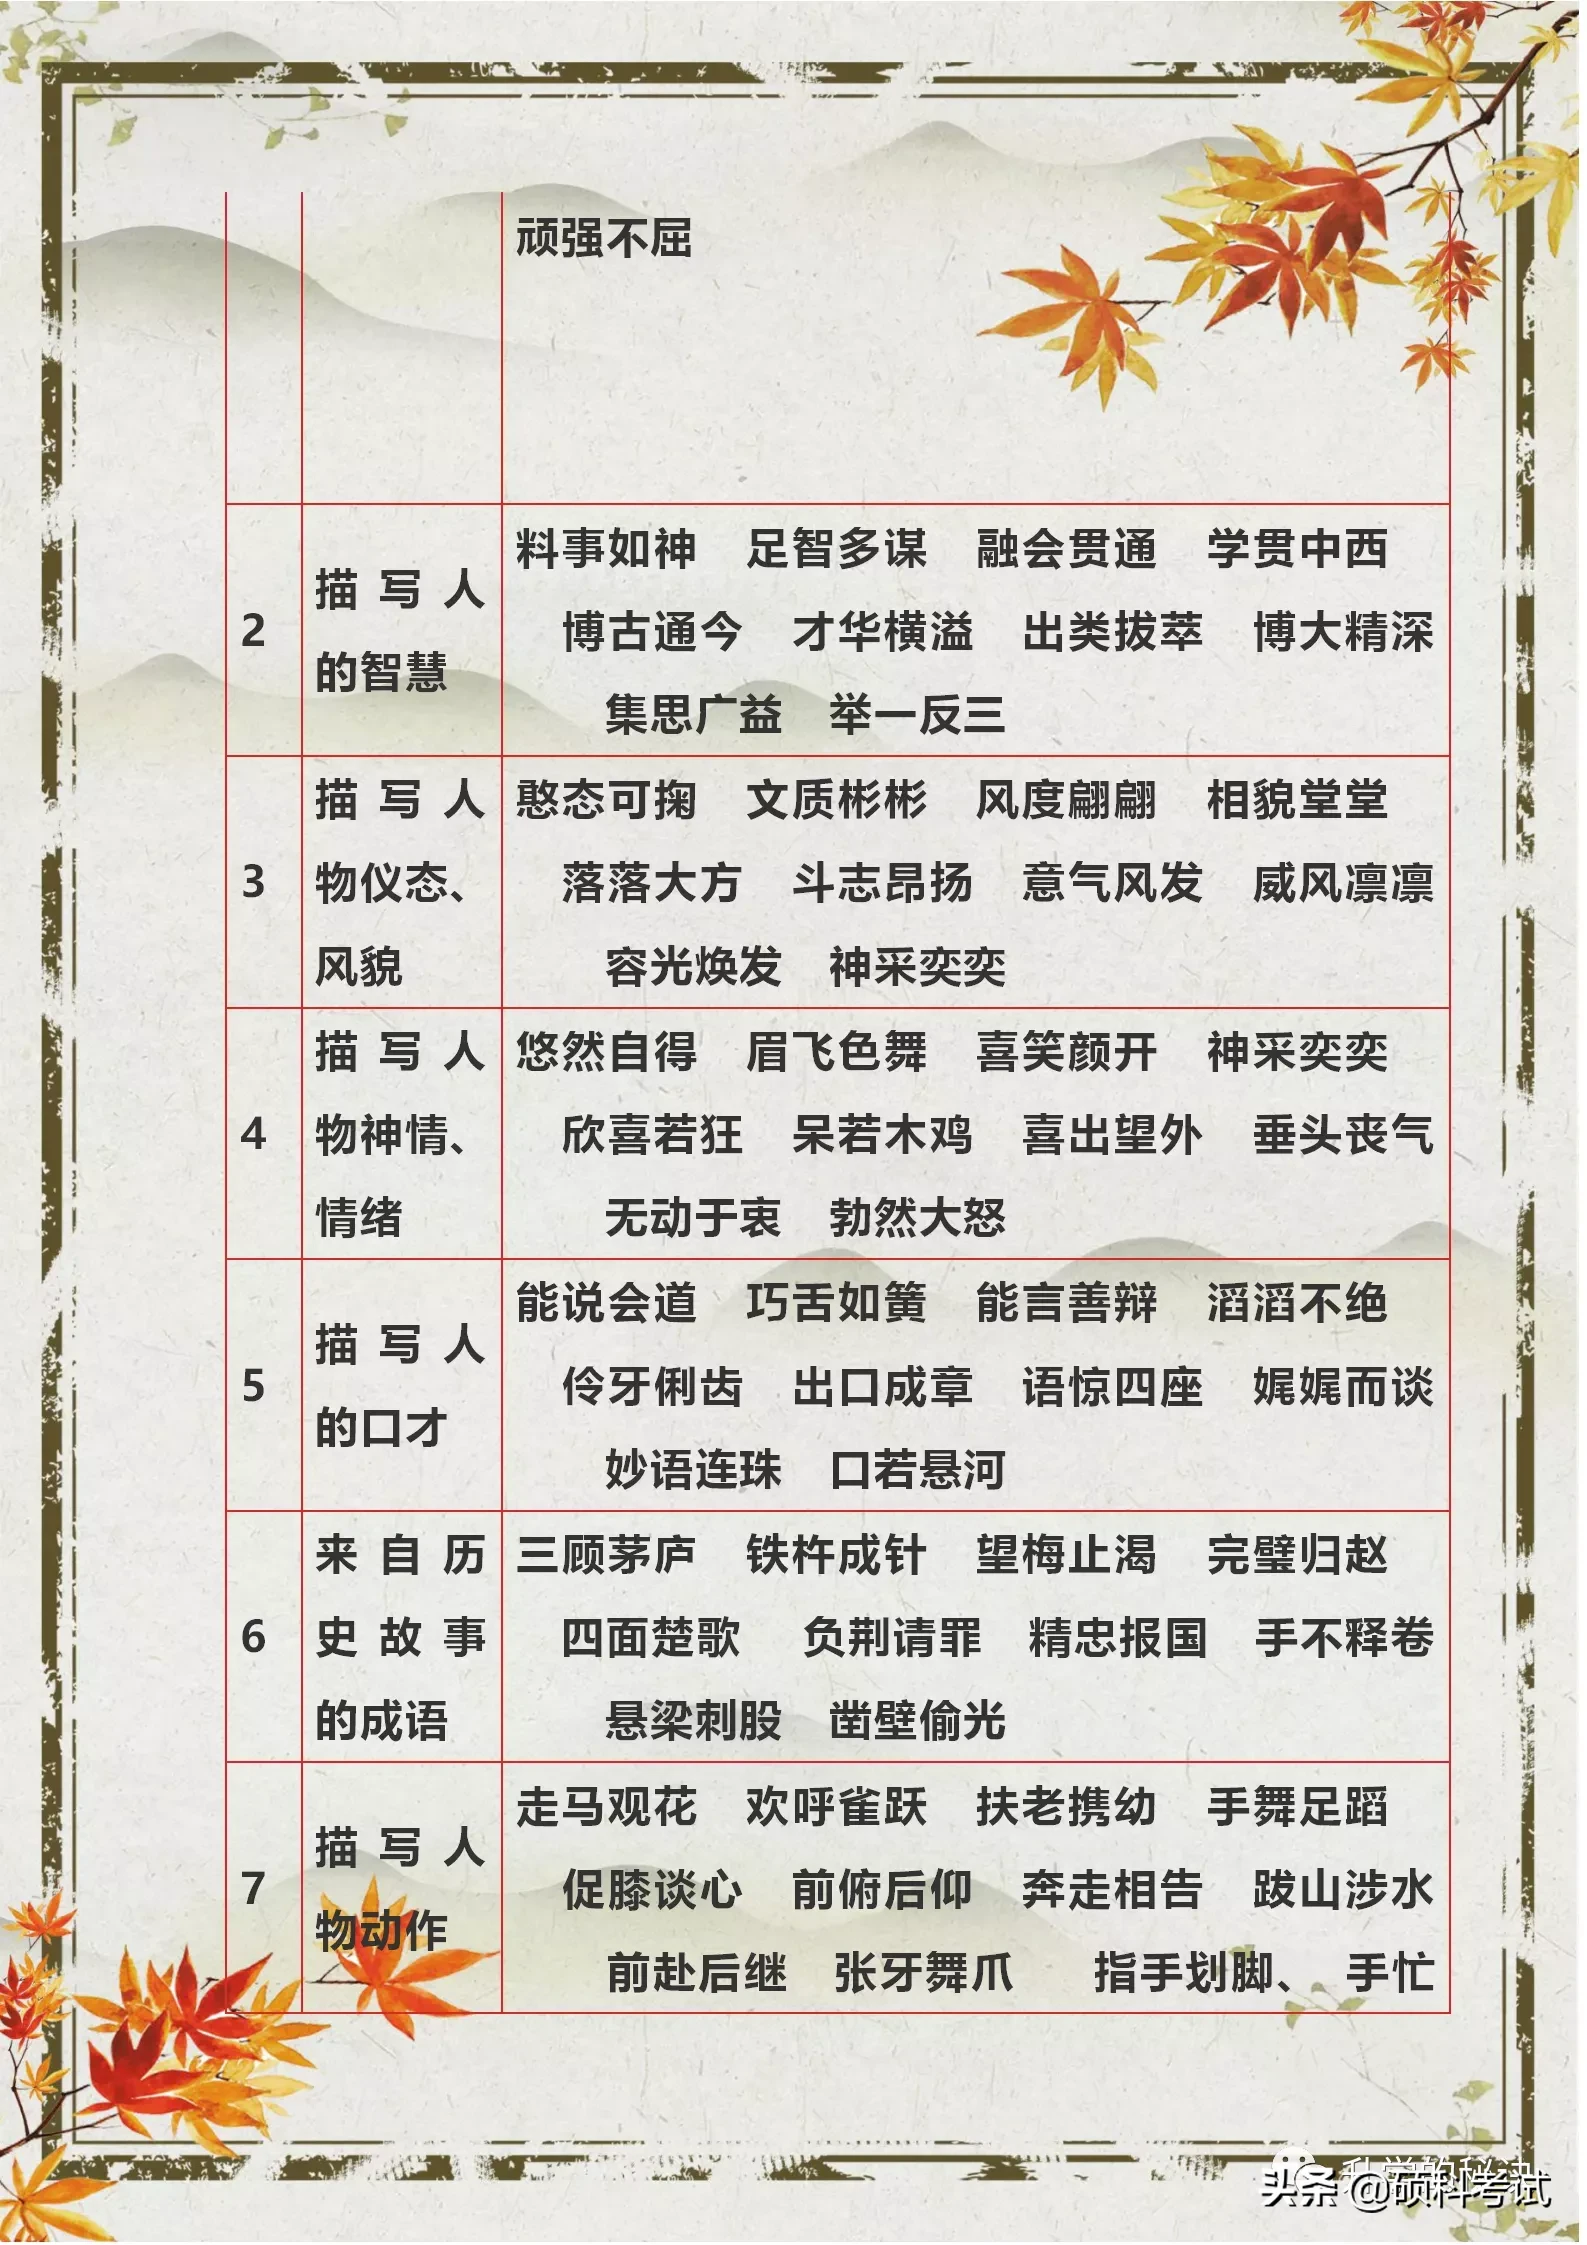 顽强不屈
2 描写人的智慧
料事如神 足智多谋 融会贯通 学贯中西
博古通今 才华横溢 出类拔萃 博大精深
集思广益 举一反三
3 描写人物仪态、风貌
憨态可掬 文质彬彬 风度翩翩 相貌堂堂
落落大方 斗志昂扬 意气风发 威风凛凛
容光焕发 神采奕奕
4 描写人物神情、情绪
悠然自得 眉飞色舞 喜笑颜开 神采奕奕
欣喜若狂 呆若木鸡 喜出望外 垂头丧气
无动于衷 勃然大怒
5 描写人的口才
能说会道 巧舌如簧 能言善辩 滔滔不绝
伶牙俐齿 出口成章 语惊四座 娓娓而谈
妙语连珠 口若悬河
6 来自历史故事的成语
三顾茅庐 铁杵成针 望梅止渴 完璧归赵
四面楚歌 负荆请罪 精忠报国 手不释卷
悬梁刺股 凿壁偷光
7 描写人物动作
走马观花 欢呼雀跃 扶老携幼 手舞足蹈
促膝谈心 前俯后仰 奔走相告 跋山涉水
前赴后继 张牙舞爪 指手划脚、 手忙
头条 @硕科考试